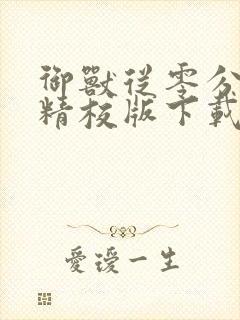 御獸從零分
精校版下載
愛璦一生